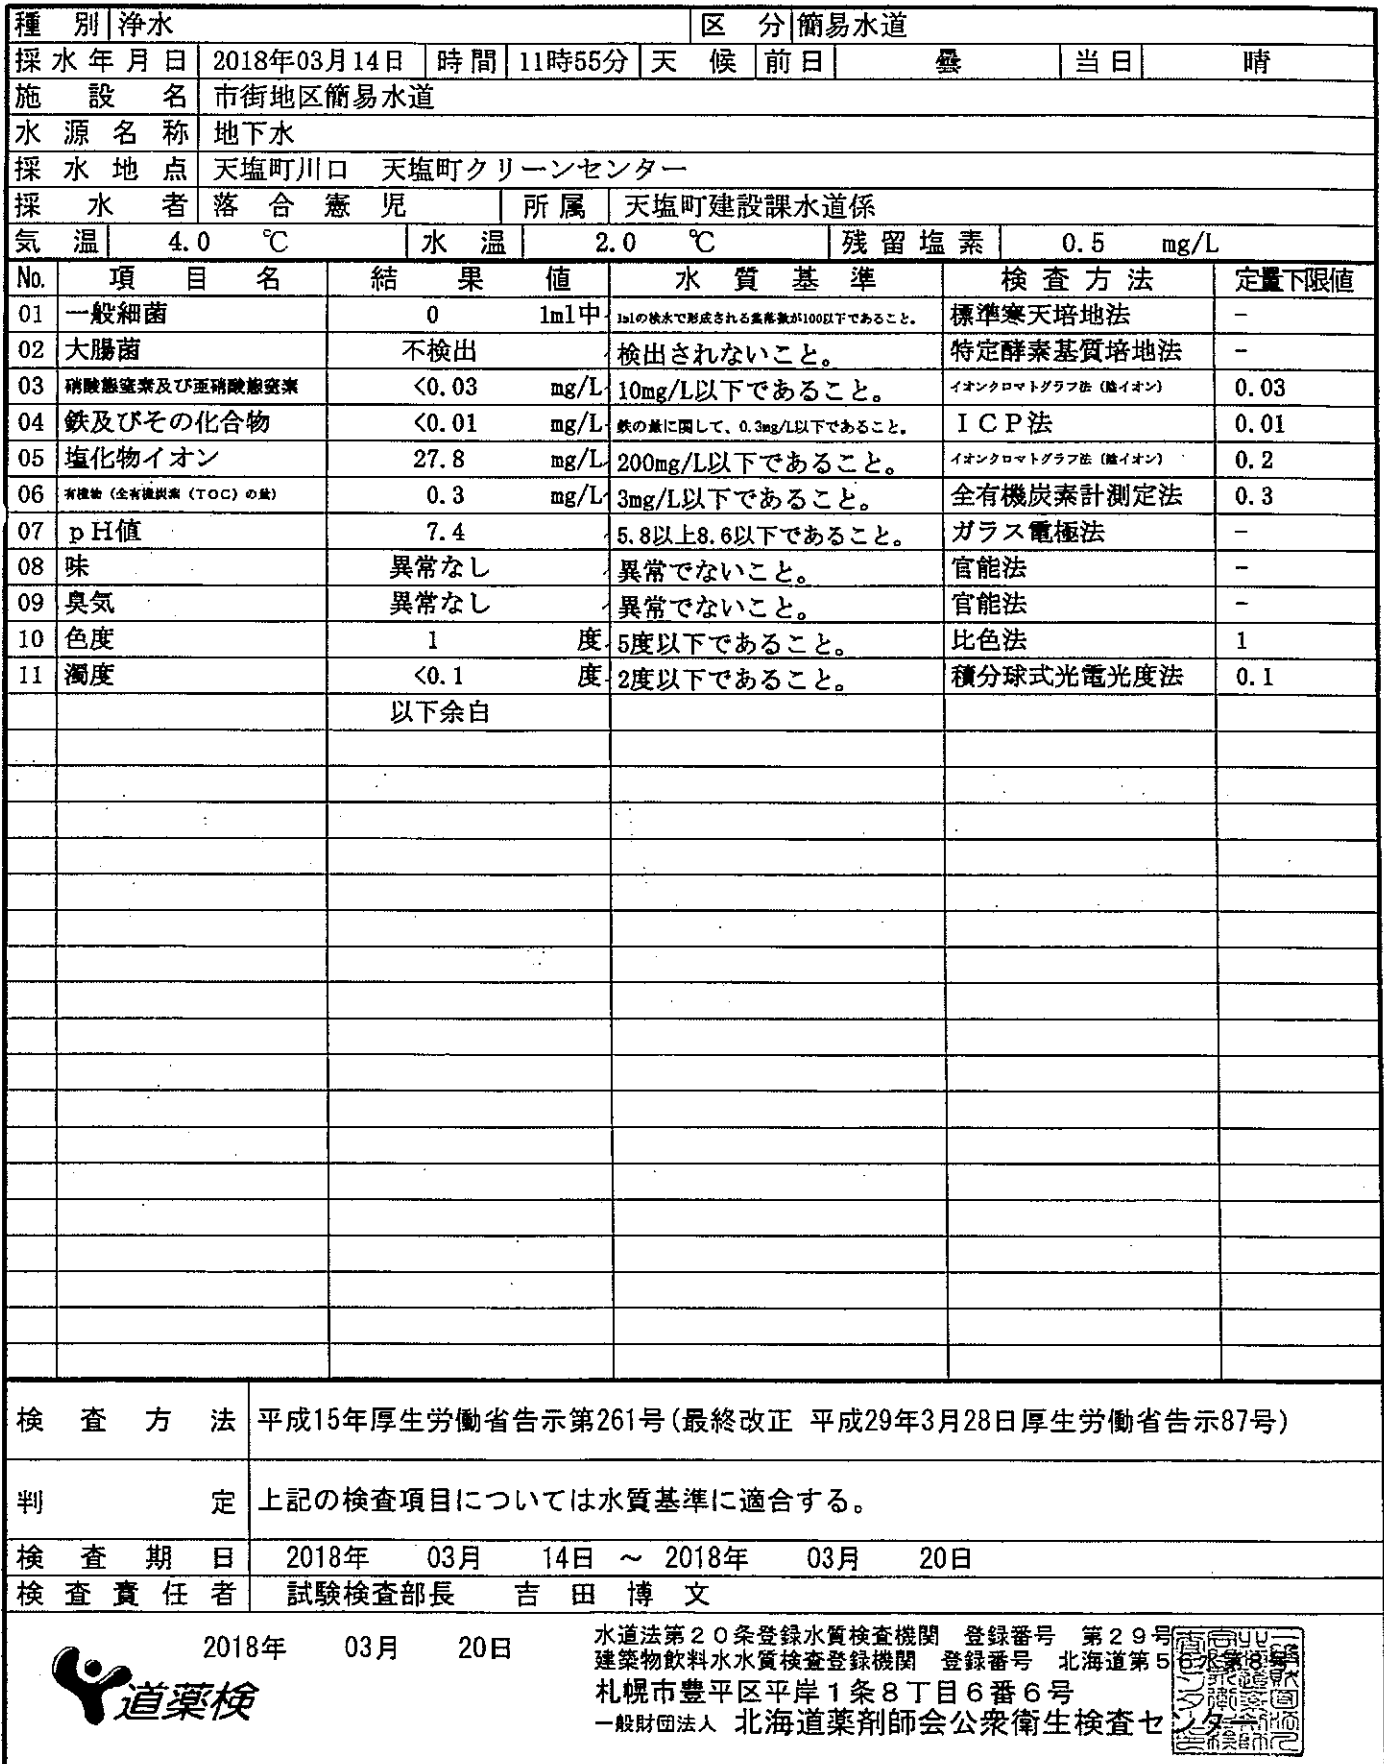 種別 浄水 区分 簡易水道
採水年月日 2018年03月14日 時間 11時55分 天候 前日 曇 当日 晴
施設名 市街地区簡易水道
水源名称 地下水
採水地点 天塩町川口 天塩町クリーンセンター
採水者 落合憲児 所属 天塩町建設課水道係
気温 4.0 ℃ 水温 2.0 ℃ 残留塩素 0.5 mg/L
No. 項目名 結果値 水質基準 検査方法 定量下限値
01 一般細菌 0 1ml中 1mlの検水で形成される集落数が100以下であること。 標準寒天培地法 －
02 大腸菌 不検出 検出されないこと。 特定酵素基質培地法 －
03 硝酸態窒素及び亜硝酸態窒素 <0.03 mg/L 10mg/L以下であること。 イオンクロマトグラフ法（陰イオン） 0.03
04 鉄及びその化合物 <0.01 mg/L 鉄の量に関して、0.3mg/L以下であること。 ＩＣＰ法 0.01
05 塩化物イオン 27.8 mg/L 200mg/L以下であること。 イオンクロマトグラフ法（陰イオン） 0.2
06 有機物（全有機炭素（TOC）の量） 0.3 mg/L 3mg/L以下であること。 全有機炭素計測定法 0.3
07 ｐH値 7.4 5.8以上8.6以下であること。 ガラス電極法 －
08 味 異常なし 異常でないこと。 官能法 －
09 臭気 異常なし 異常でないこと。 官能法 －
10 色度 1 度 5度以下であること。 比色法 1
11 濁度 <0.1 度 2度以下であること。 積分球式光電光度法 0.1
以下余白
検査方法 平成15年厚生労働省告示第261号(最終改正 平成29年3月28日厚生労働省告示87号)
判定 上記の検査項目については水質基準に適合する。
検査期日 2018年 03月 14日 ～ 2018年 03月 20日
検査責任者 試験検査部長 吉田博文
2018年 03月 20日
水道法第２０条登録水質検査機関 登録番号 第２９号
建築物飲料水水質検査登録機関 登録番号 北海道第５６水第８号
札幌市豊平区平岸１条８丁目６番６号
一般財団法人 北海道薬剤師会公衆衛生検査センター
道薬検